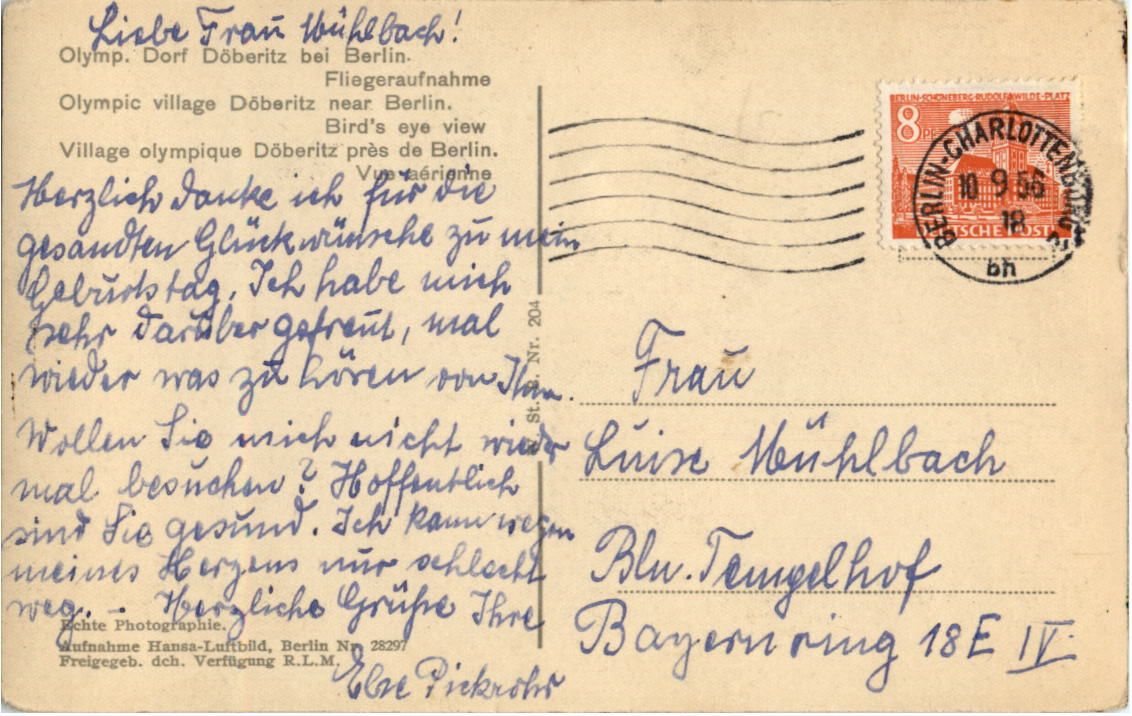 Liebe Frau Mühlbach!
Olymp. Dorf Döberitz bei Berlin.
Fliegeraufnahme
Olympic village Döberitz near Berlin.
Bird's eye view
Village olympique Döberitz près de Berlin.
Vue aérienne
Herzlich danke ich für die
gesandten Glückwünsche zu mein
Geburtstag. Ich habe mich
sehr darüber gefreut, mal
wieder was zu hören von Ihnen.
Wollen Sie mich nicht wieder
mal besuchen? Hoffentlich
sind Sie gesund. Ich kann wegen
meines Herzens nur schlecht
weg. - Herzliche Grüße Ihre
Else Pickrohr
Echte Photographie.
Aufnahme Hansa-Luftbild, Berlin Nr. 28297
Freigegeb. dch. Verfügung R.L.M.
St. Nr. 204
BERLIN-SCHÖNEBERG·RUDOLF-WILDE-PLATZ
8 PF
DEUTSCHE POST
BERLIN-CHARLOTTENBURG 2
10.9.56
18
bh
Frau
Luise Mühlbach
Bln. Tempelhof
Bayernring 18E IV.